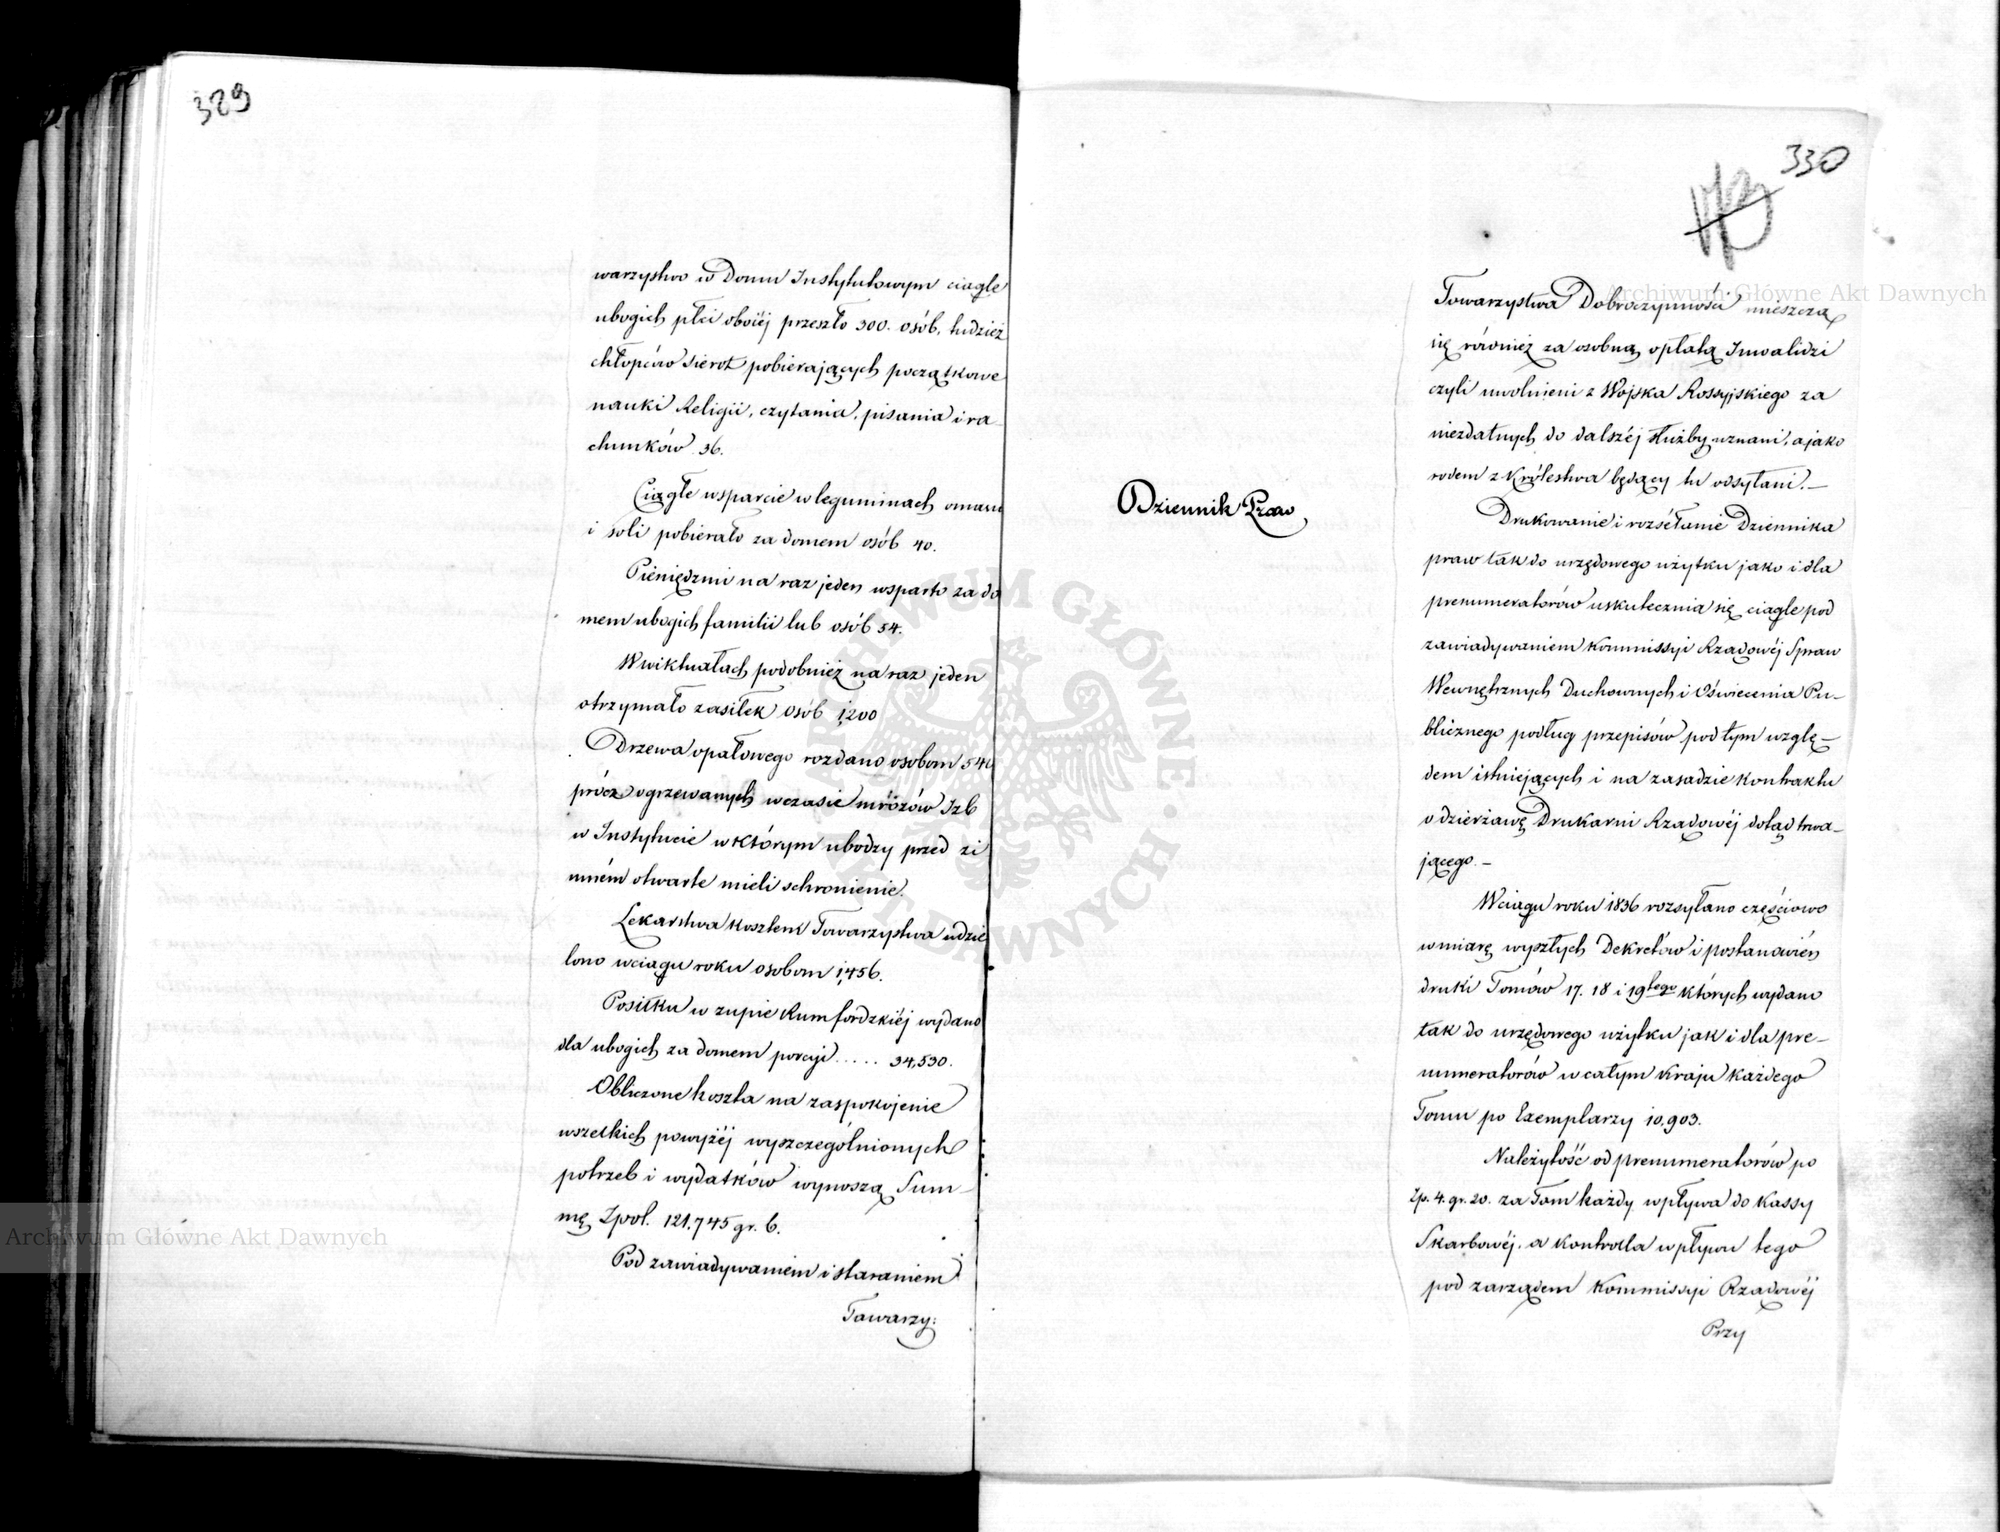 329
warzystwo w Domu Instytutowym ciągle
ubogich płci obojéj przeszło 300. osób, tudzież
chłopców sierot pobierających początkowe
nauki Religii, czytania, pisania i ra
chunków 36.
Ciągłe wsparcie w leguminach omasu
i soli pobierało za domem osób 40.
Pieniędzmi na raz jeden wsparto za do
mem ubogich familii lub osób 54.
W wiktuałach podobnież na raz jeden
otrzymało zasiłek osób 1,200
Drzewa opałowego rozdano osobom 540
prócz ogrzewanych wczasie mrozów Izb
w Instytucie w którym ubodzy przed zi
mném otwarte mieli schronienie.
Lekarstwa kosztem Towarzystwa udzie
lono wciągu roku osobom 1,456.
Posiłku w zupie Rumfordzkiéj wydano
dla ubogich za domem porcyi ..... 34,530.
Obliczone koszta na zaspokojenie
wszelkich powyżéj wyszczególnionych
potrzeb i wydatków wynoszą Sum-
mę Zpol. 121,745 gr. 6.
Pod zawiadywaniem i staraniem
Towarzy:
330
Towarzystwa Dobroczynności mieszczą
się również za osobną opłatą Inwalidzi
czyli uwolnieni z Wojska Rossyjskiego za
niezdatnych do dalszéj służby uznani, a jako
rodem z Królestwa będący tu odsyłani.—
Dziennik Praw
Drukowanie i rozséłanie Dziennika
praw tak do urzędowego użytku jako i dla
prenumeratorów uskutecznia się ciągle pod
zawiadywaniem Kommissyi Rządowéj Spraw
Wewnętrznych Duchownych i Oświecenia Pu-
blicznego podług przepisów pod tym wzglę-
dem istniejących i na zasadzie kontraktu
o dzierżawę Drukarni Rządowéj dotąd trwa-
jącego.—
Wciągu roku 1836 rozsyłano częściowo
w miarę wyszłych Dekretów i postanowień
druki Tomów 17. 18 i 19tego których wydano
tak do urzędowego użytku jak i dla pre-
numeratorów w całym Kraju każdego
Tomu po Exemplarzy 10,903.
Należytość od prenumeratorów po
Zp. 4. gr. 20. za Tom każdy wpływa do Kassy
Skarbowéj, a kontrolla wpływu tego
pod zarządem Kommissyi Rządowéj
Przy
Archiwum Główne Akt Dawnych
Archiwum Główne Akt Dawnych
ARCHIWUM GŁÓWNE · AKT DAWNYCH ·